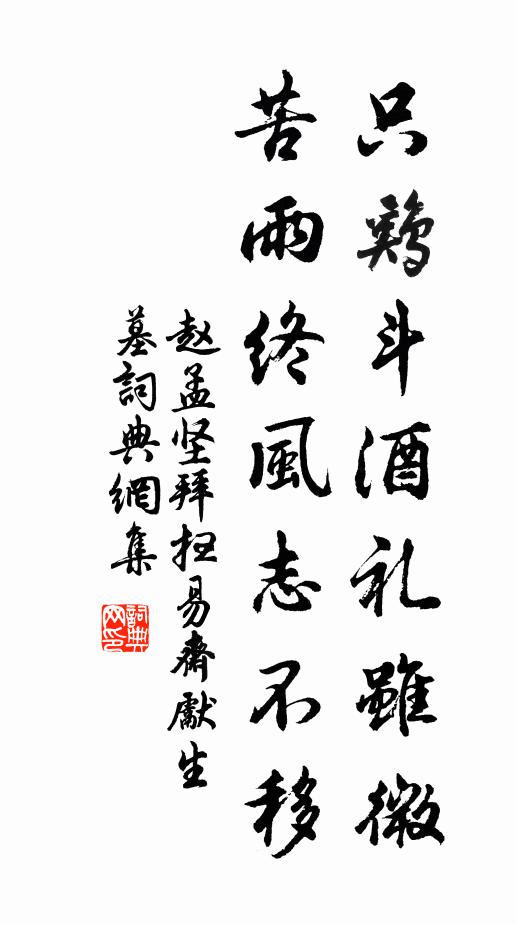 只鷄斗酒礼雖微
苦雨終風志不移
赵孟坚拜抯易齋獻生
墓詞典網集
詞典
网印